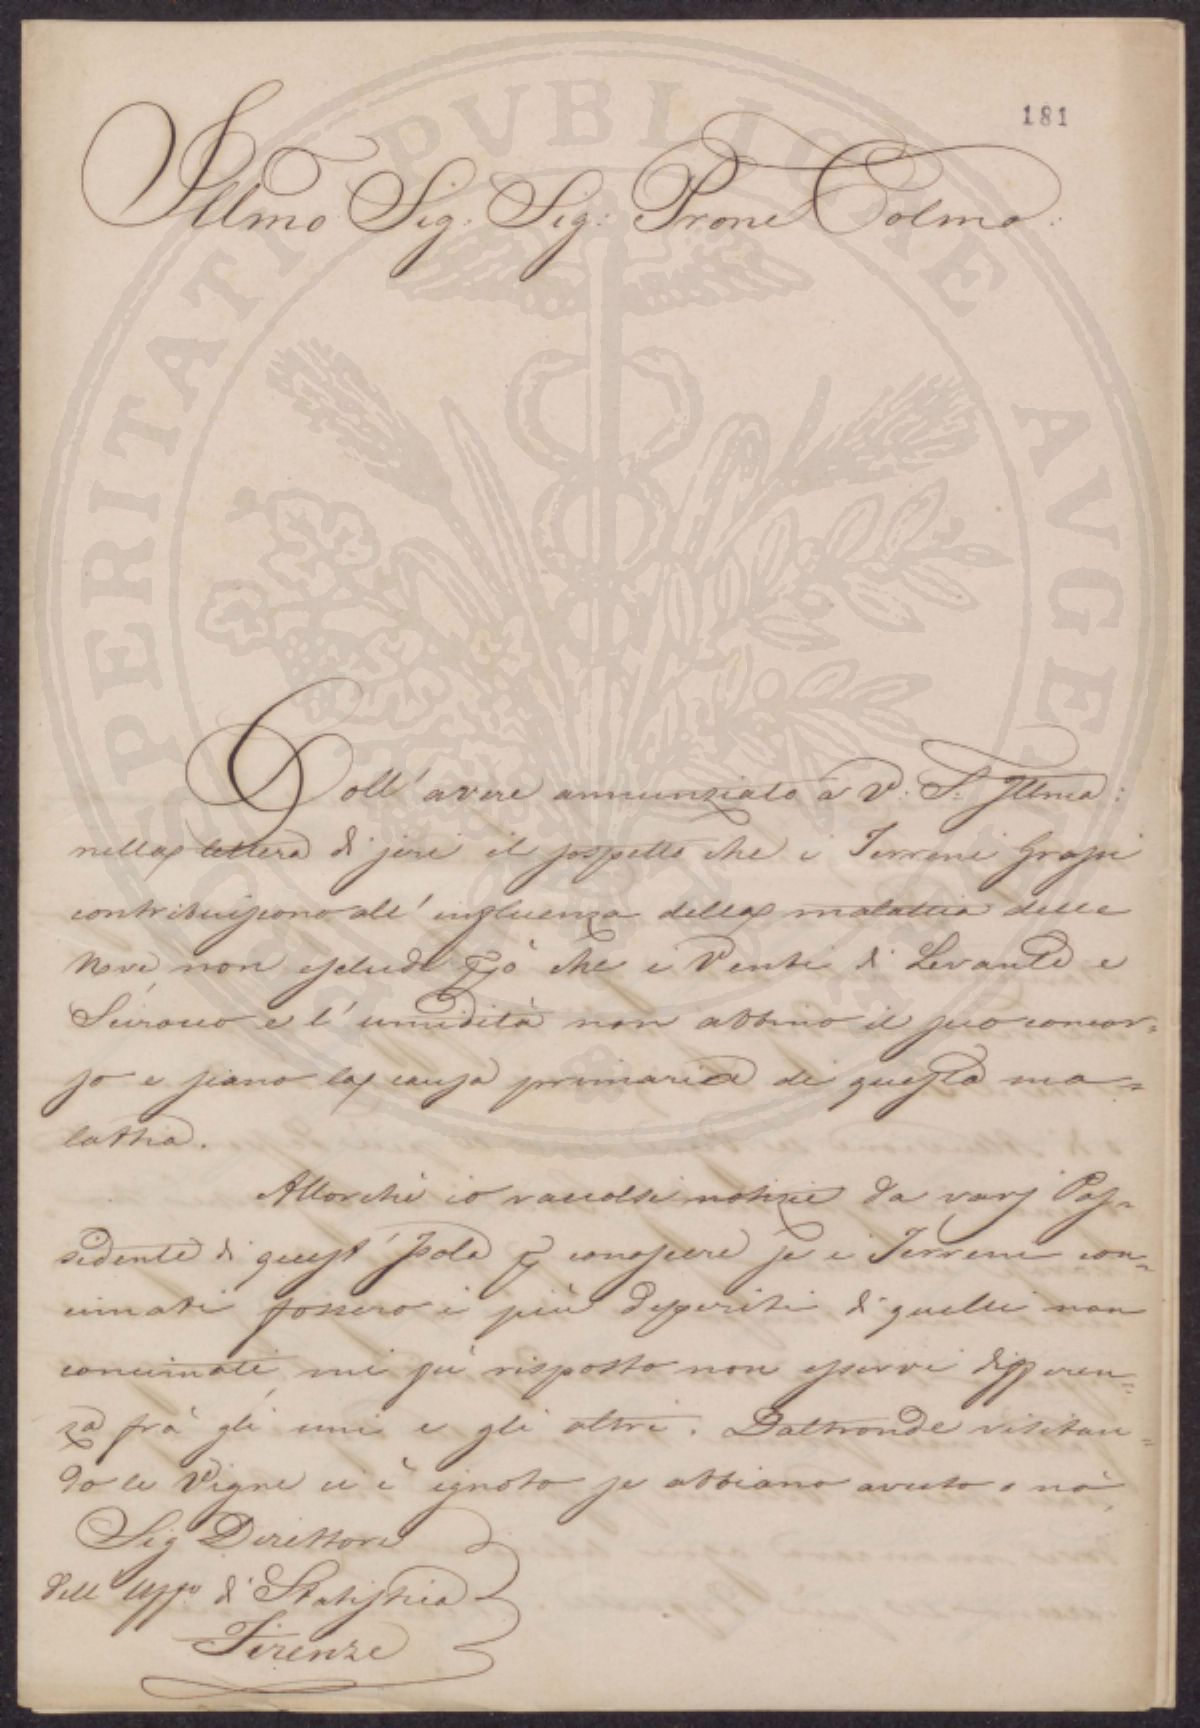 181
Illmo Sig: Sig: Prone Colmo:
Coll' avere annunziato a V: S: Illma:
nella lettera di jeri il sospetto che i Terreni Grassi
contribuiscono all' influenza della malattia delle
Uve non esclude però che i Venti di Levante e
Scirocco e l' umidità non abbino il suo concor=
so e siano la causa primaria di questa ma=
lattia.
Allorchè io raccolsi notizie da varj Pos=
sidenti di quest' Isola per conoscere se i Terreni con=
cimati fossero i più deperiti di quelli non
concimati mi fù risposto non esservi differen=
za frà gli uni e gli altri. Daltronde visitan=
do le Vigne ci è ignoto se abbiano avuto o nò
Sig Direttore
dell' Uffo di Statistica
Firenze
PROSPERITATI PVBLICAE AVGENDAE